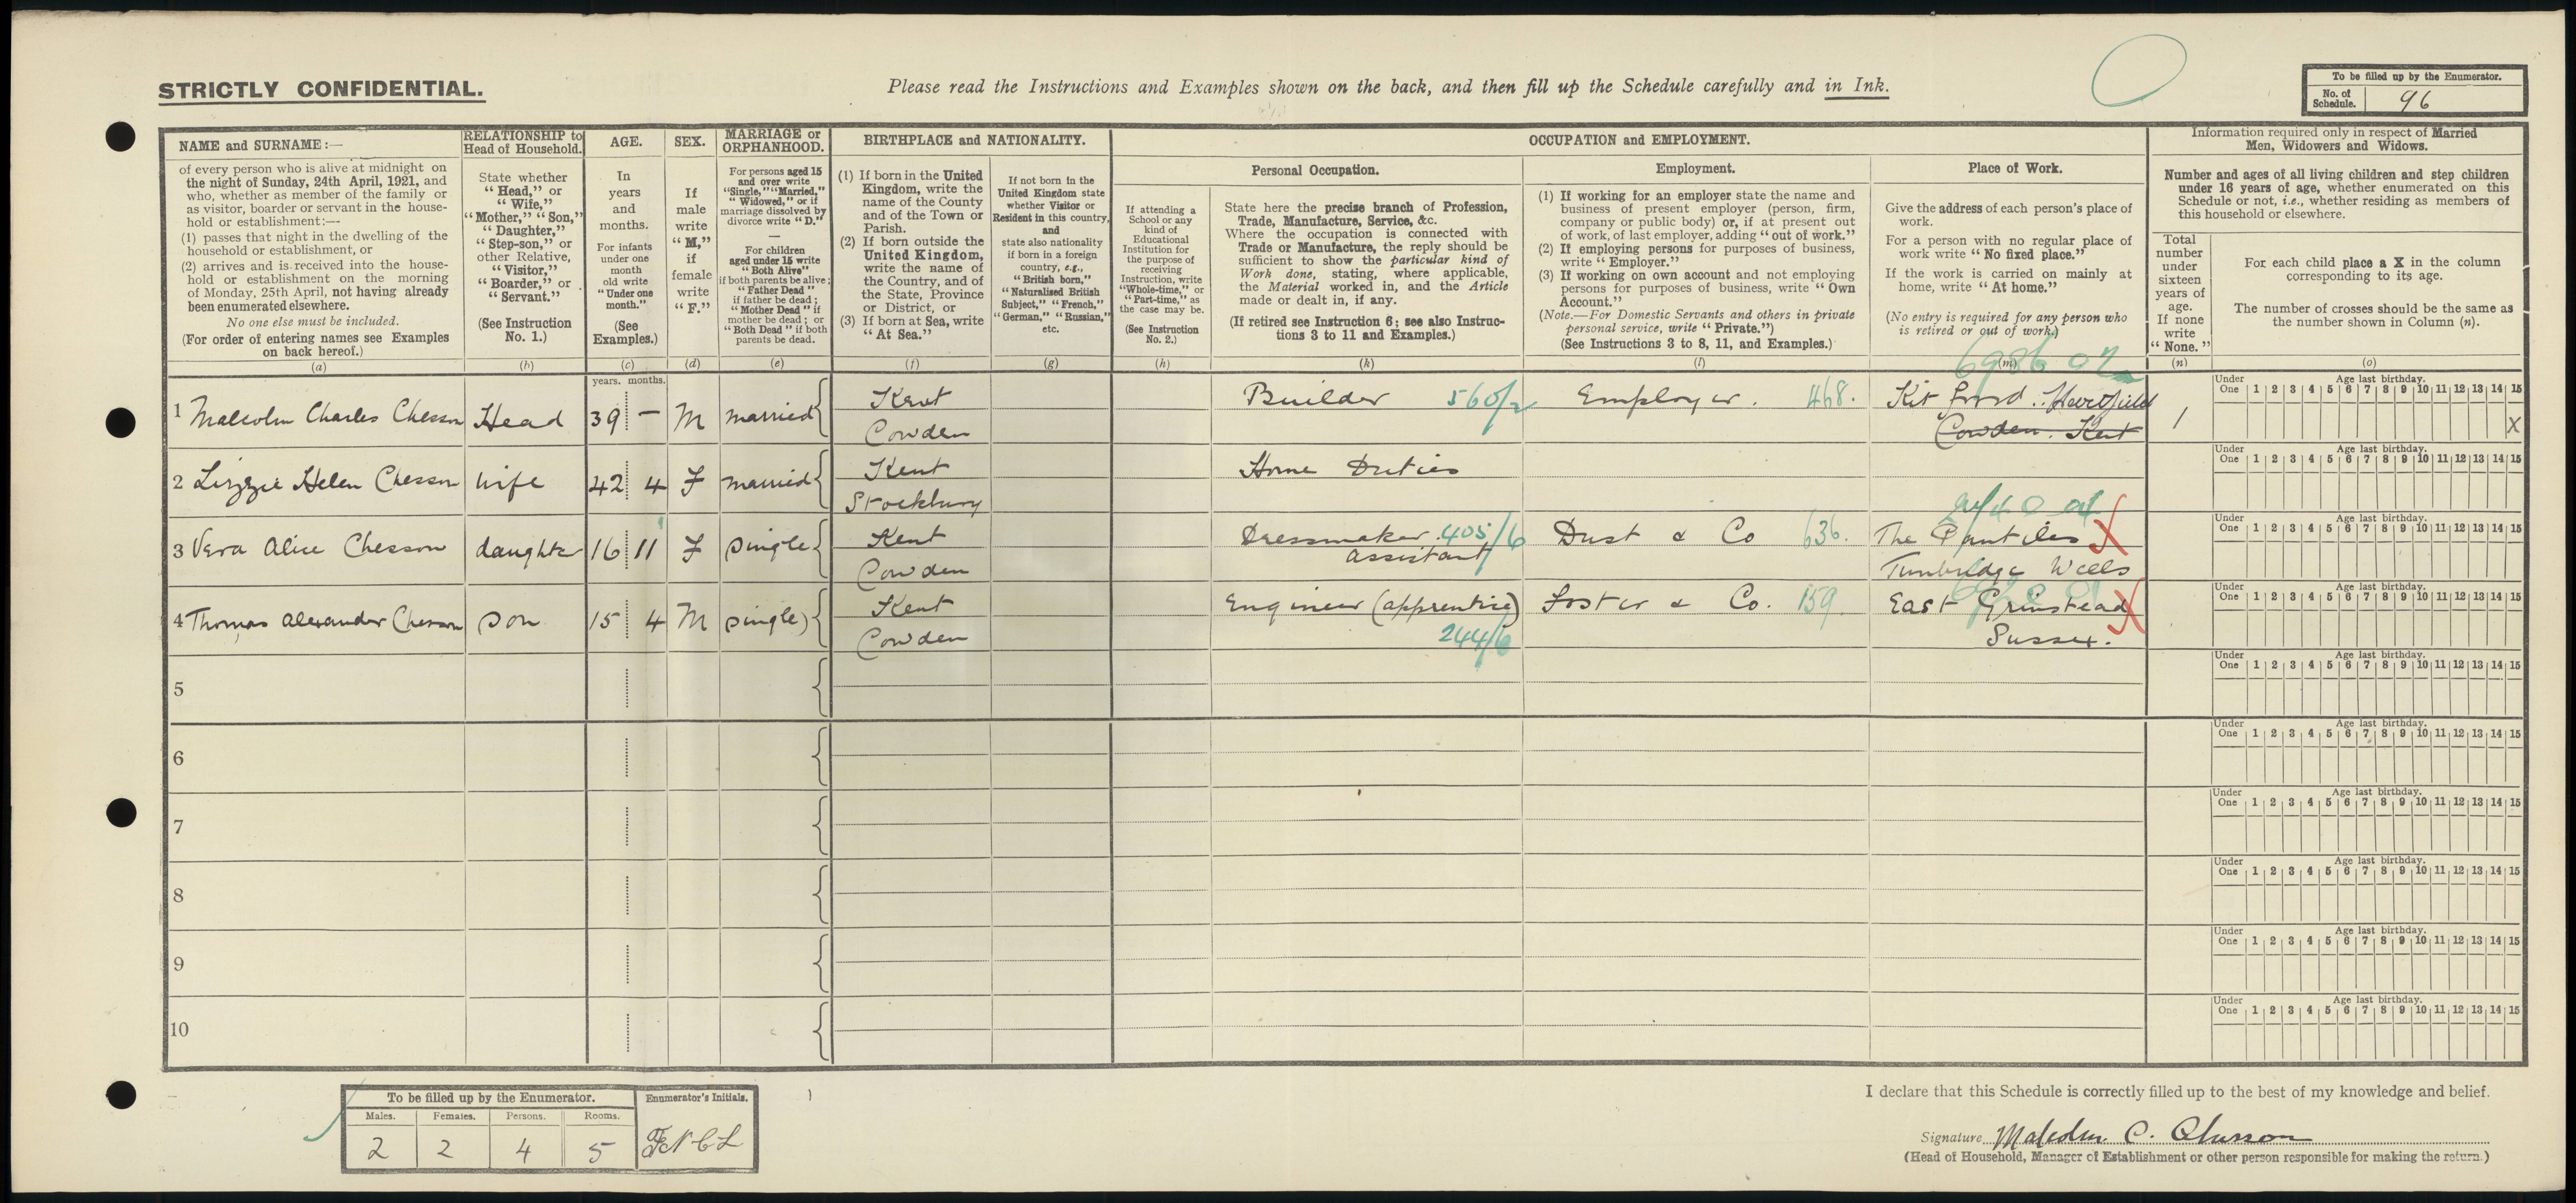 STRICTLY CONFIDENTIAL.
Please read the Instructions and Examples shown on the back, and then fill up the Schedule carefully and in Ink.
To be filled up by the Enumerator.
No. of Schedule. 96
NAME and SURNAME:—
of every person who is alive at midnight on
the night of Sunday, 24th April, 1921, and
who, whether as member of the family or
as visitor, boarder or servant in the house-
hold or establishment:—
(1) passes that night in the dwelling of the
household or establishment, or
(2) arrives and is received into the house-
hold or establishment on the morning
of Monday, 25th April, not having already
been enumerated elsewhere.
No one else must be included.
(For order of entering names see Examples
on back hereof.)
(a)
RELATIONSHIP to
Head of Household.
State whether
"Head," or
"Wife,"
"Mother," "Son,"
"Daughter,"
"Step-son," or
other Relative,
"Visitor,"
"Boarder," or
"Servant."
(See Instruction
No. 1.)
(b)
AGE.
In
years
and
months.
For infants
under one
month
old write
"Under one
month."
(See
Examples.)
(c)
SEX.
If
male
write
"M,"
if
female
write
"F."
(d)
MARRIAGE or
ORPHANHOOD.
For persons aged 15
and over write
"Single," "Married,"
"Widowed," or if
marriage dissolved by
divorce write "D."
—
For children
aged under 15 write
"Both Alive"
if both parents be alive;
"Father Dead"
if father be dead;
"Mother Dead" if
mother be dead; or
"Both Dead" if both
parents be dead.
(e)
BIRTHPLACE and NATIONALITY.
(1) If born in the United
Kingdom, write the
name of the County
and of the Town or
Parish.
(2) If born outside the
United Kingdom,
write the name of
the Country, and of
the State, Province
or District, or
(3) If born at Sea, write
"At Sea."
(f)
If not born in the
United Kingdom state
whether Visitor or
Resident in this country,
and
state also nationality
if born in a foreign
country, e.g.,
"British born,"
"Naturalised British
Subject," "French,"
"German," "Russian,"
etc.
(g)
OCCUPATION and EMPLOYMENT.
If attending a
School or any
kind of
Educational
Institution for
the purpose of
receiving
Instruction, write
"Whole-time," or
"Part-time," as
the case may be.
(See Instruction
No. 2.)
(h)
Personal Occupation.
State here the precise branch of Profession,
Trade, Manufacture, Service, &c.
Where the occupation is connected with
Trade or Manufacture, the reply should be
sufficient to show the particular kind of
Work done, stating, where applicable,
the Material worked in, and the Article
made or dealt in, if any.
(If retired see Instruction 6; see also Instruc-
tions 3 to 11 and Examples.)
(k)
Employment.
(1) If working for an employer state the name and
business of present employer (person, firm,
company or public body) or, if at present out
of work, of last employer, adding "out of work."
(2) If employing persons for purposes of business,
write "Employer."
(3) If working on own account and not employing
persons for purposes of business, write "Own
Account."
(Note.—For Domestic Servants and others in private
personal service, write "Private.")
(See Instructions 3 to 8, 11, and Examples.)
(l)
Place of Work.
Give the address of each person's place of
work.
For a person with no regular place of
work write "No fixed place."
If the work is carried on mainly at
home, write "At home."
(No entry is required for any person who
is retired or out of work.)
(m)
Information required only in respect of Married
Men, Widowers and Widows.
Number and ages of all living children and step children
under 16 years of age, whether enumerated on this
Schedule or not, i.e., whether residing as members of
this household or elsewhere.
Total
number
under
sixteen
years of
age.
If none
write
"None."
(n)
For each child place a X in the column
corresponding to its age.
The number of crosses should be the same as
the number shown in Column (n).
(o)
years. months.
1 Malcolm Charles Chesson Head 39 – M married Kent Builder 560/2 Employer. 468. Kit Ford. Hartfield 1 X
Cowden Cowden. Kent
2 Lizzie Helen Chesson Wife 42 4 F married Kent Home Duties
Stockbury
3 Vera Alice Chesson daughter 16 11 F single Kent Dressmaker 405/6 Dust & Co 636. The Pantiles X
Cowden assistant Tunbridge Wells
4 Thomas Alexander Chesson son 15 4 M single Kent Engineer (apprentice) Foster & Co. 159. East Grinstead X
Cowden 244/6 Sussex.
5
6
7
8
9
10
Under One 1 2 3 4 5 6 7 8 9 10 11 12 13 14 15
Age last birthday.
Under One 1 2 3 4 5 6 7 8 9 10 11 12 13 14 15
Age last birthday.
Under One 1 2 3 4 5 6 7 8 9 10 11 12 13 14 15
Age last birthday.
Under One 1 2 3 4 5 6 7 8 9 10 11 12 13 14 15
Age last birthday.
Under One 1 2 3 4 5 6 7 8 9 10 11 12 13 14 15
Age last birthday.
Under One 1 2 3 4 5 6 7 8 9 10 11 12 13 14 15
Age last birthday.
Under One 1 2 3 4 5 6 7 8 9 10 11 12 13 14 15
Age last birthday.
Under One 1 2 3 4 5 6 7 8 9 10 11 12 13 14 15
Age last birthday.
Under One 1 2 3 4 5 6 7 8 9 10 11 12 13 14 15
Age last birthday.
Under One 1 2 3 4 5 6 7 8 9 10 11 12 13 14 15
Age last birthday.
To be filled up by the Enumerator.
Males. Females. Persons. Rooms.
2 2 4 5
Enumerator's Initials.
I declare that this Schedule is correctly filled up to the best of my knowledge and belief.
Signature Malcolm C. Chesson
(Head of Household, Manager of Establishment or other person responsible for making the return.)